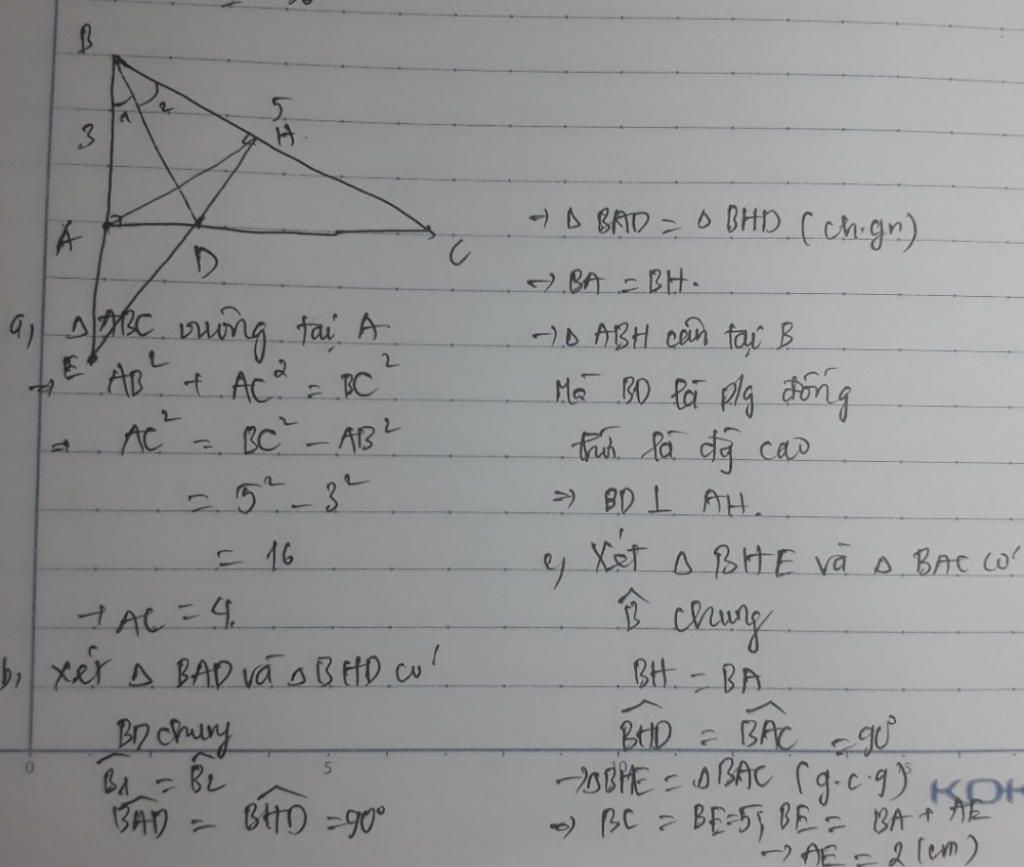 B
1 2
3
5
H
A
D
C
E
a, △ABC vuông tại A
→ AB² + AC² = BC²
→ AC² = BC² - AB²
= 5² - 3²
= 16
→ AC = 4.
b, Xét △ BAD và △ BHD có
BD chung
B̂1 = B̂2
B̂AD = B̂HD = 90°
→ △ BAD = △ BHD (ch.gn)
→ BA = BH.
→ △ ABH cân tại B
Mà BD là p/g đồng
thời là đg cao
⇒ BD ⊥ AH.
c, Xét △ BHE và △ BAC có
B̂ chung
BH = BA
B̂HD = B̂AC = 90°
→ △BHE = △BAC (g.c.g)
⇒ BC = BE=5; BE = BA + AE
→ AE = 2 (cm)
0 5
KOK